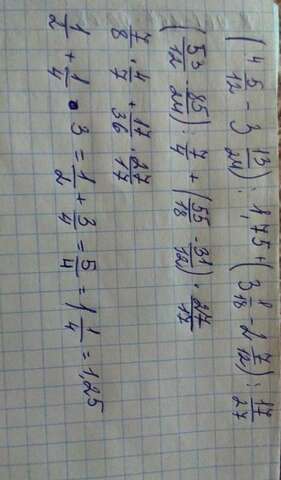 (4 5/12 - 3 13/24) : 1,75 + (3 1/18 - 2 7/12) : 17/27
(53/12 - 85/24) : 7/4 + (55/18 - 31/12) · 27/17
7/8 · 4/7 + 17/36 · 27/17
1/2 + 1/4 · 3 = 1/2 + 3/4 = 5/4 = 1 1/4 = 1,25